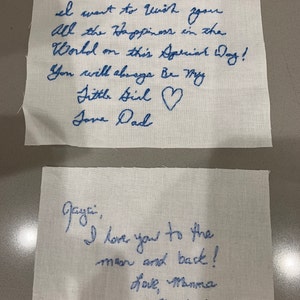 I want to Wish you
All the Happiness in the
World on this Special Day!
You will always Be My
Little Girl ♡
Love Dad
I love you to the
moon and back!
Love, Mamma